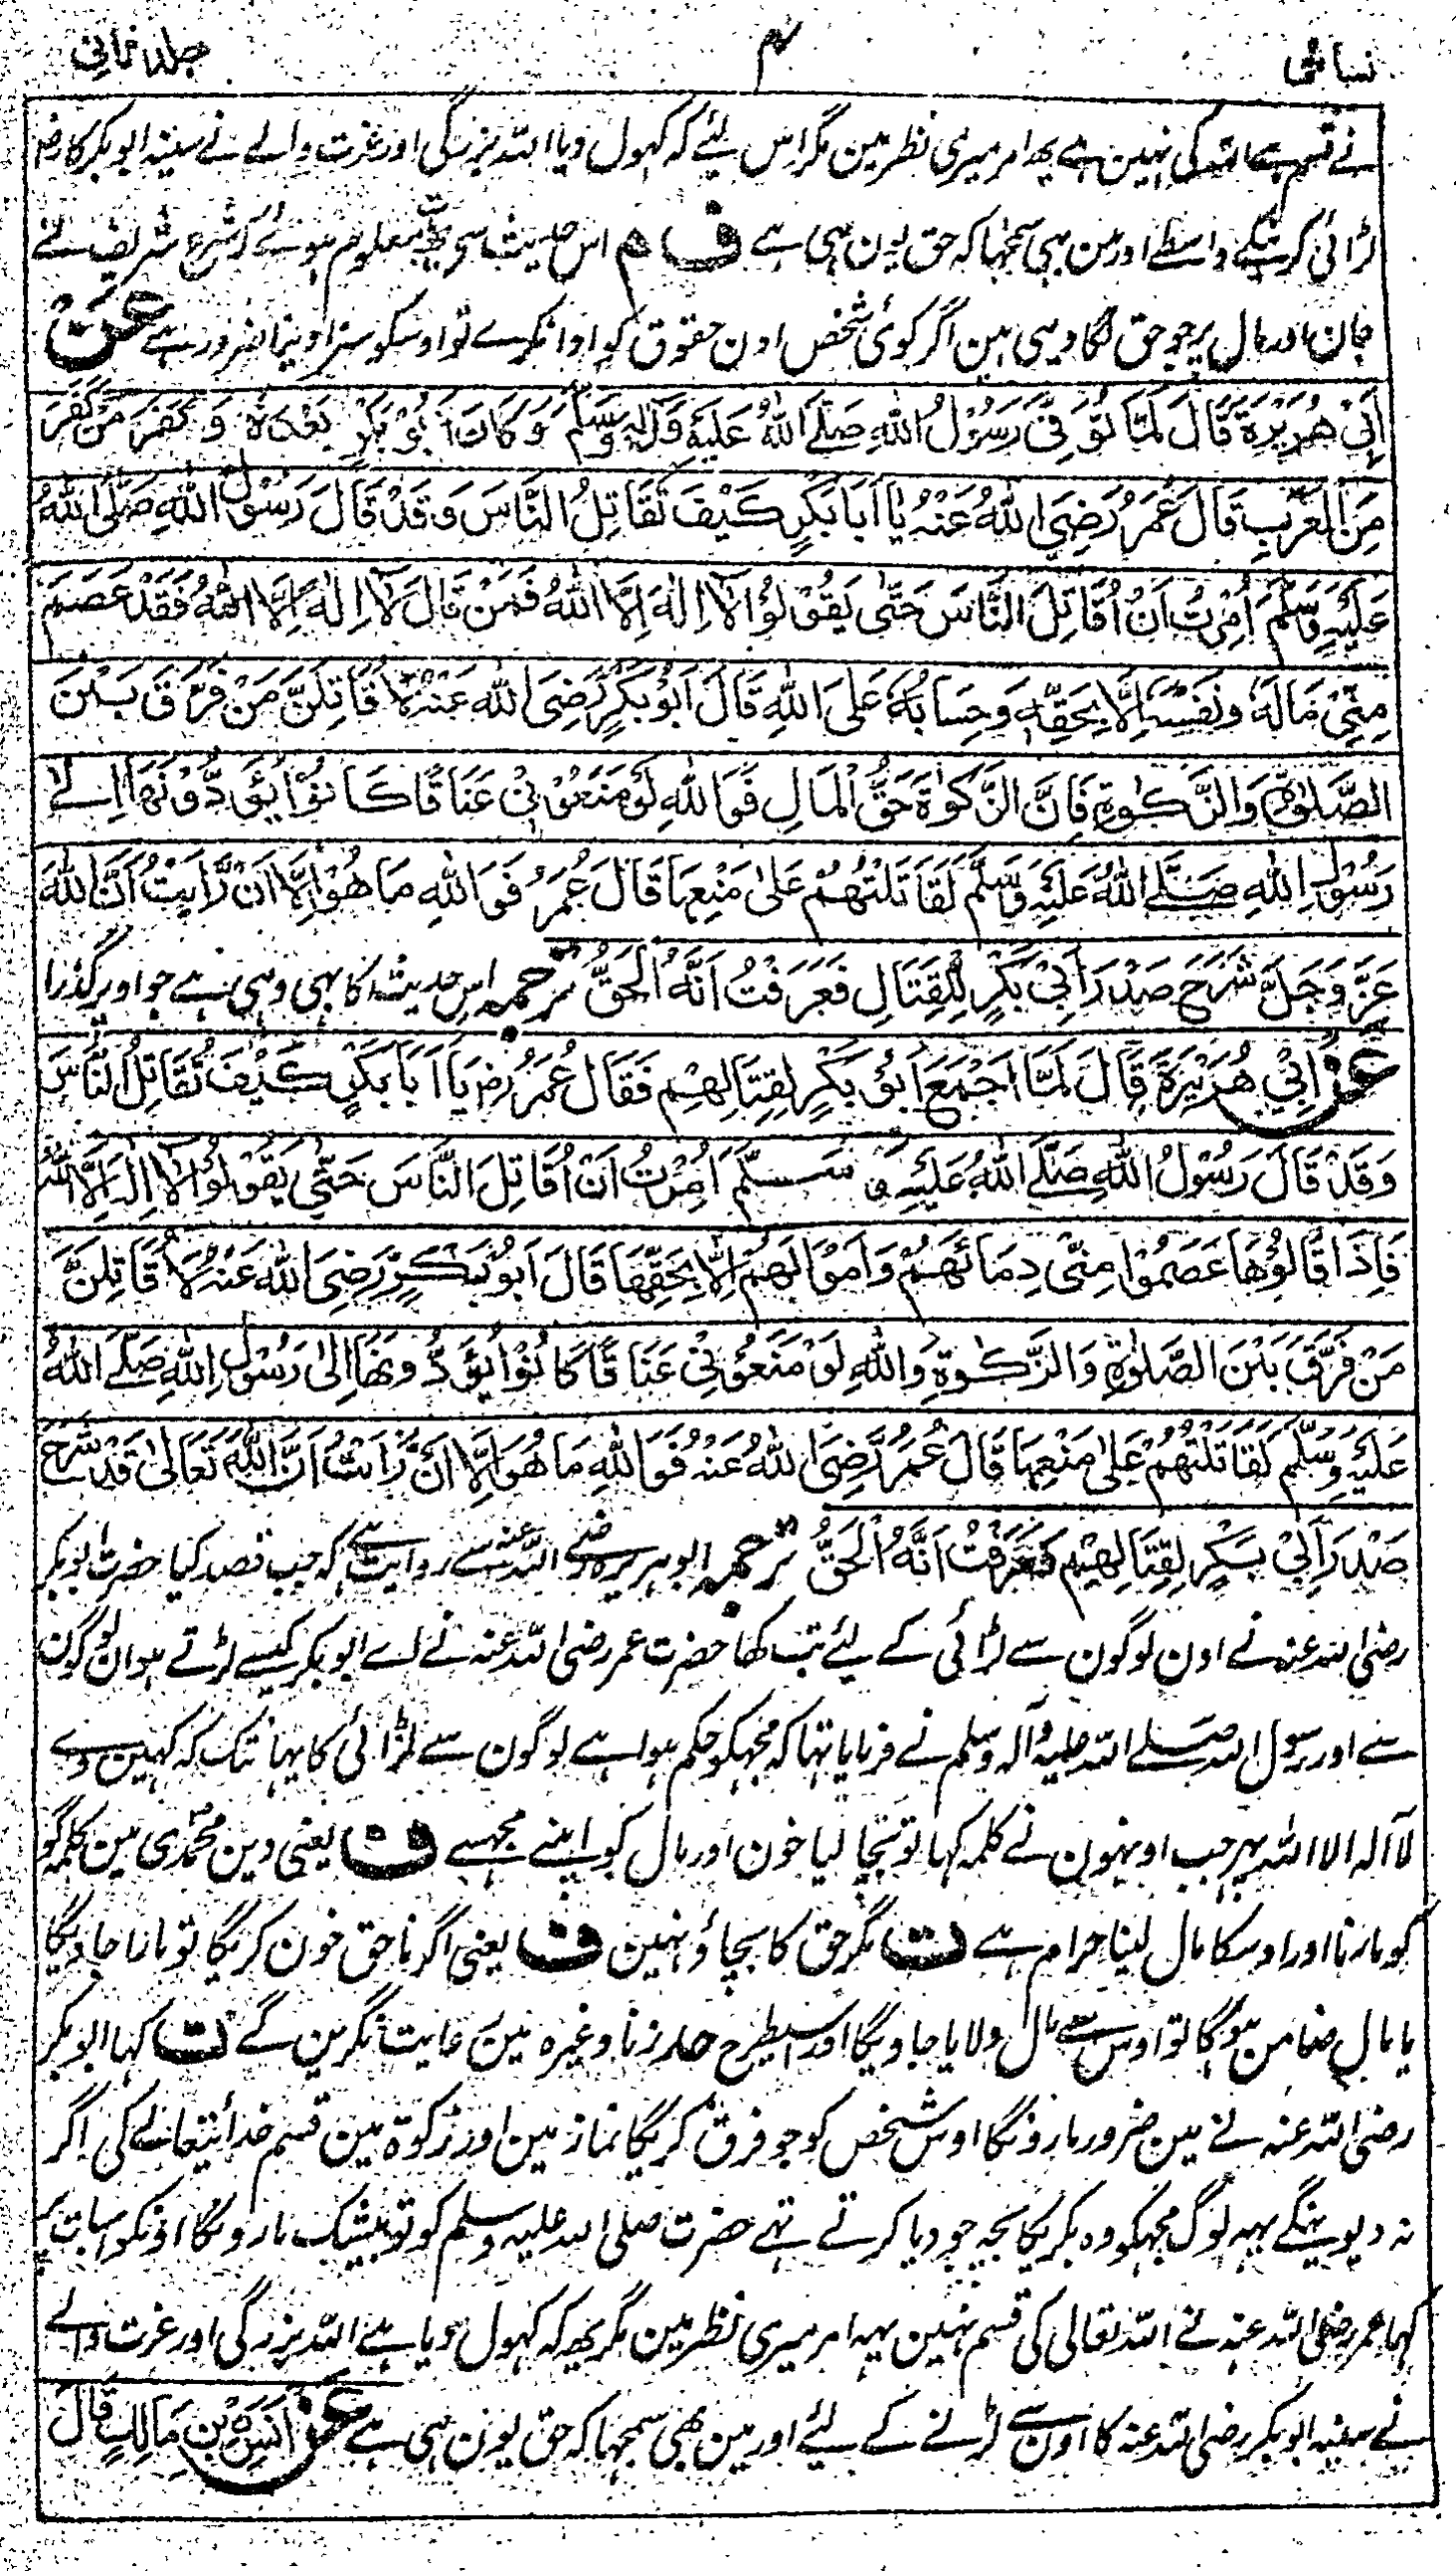 نسائی ۴ جلد ثانی
نے قسم ہے اللہ کی نہین ہے یھہ امر میری نظر مین مگر اس لیئے کہ کہول دیا اللہ بزرگی اور عزت والے نے سینہ ابوبکر کا رضہ
لڑائی کرنیکے واسطے اور مین بہی سمجہا کہ حق یون ہی ہے ف م اس حدیث سے یھہ معلوم ہوئے کہ شرع شریف نے
جان اور مال پر جو حق لگا دیی ہین اگر کوئی شخص اون حقوق کو ادا نکرے تو اوسکو سزا دینا ضرور ہے عَنْ
اَبِیْ هُرَیْرَةَ قَالَ لَمَّا تُوُفِّیَ رَسُوْلُ اللهِ صَلَّے اَللهُ عَلَیْهِ وَاٰلِهٖ وَسَلَّمَ وَكَانَ اَبُوْ بَكْرٍ بَعْدَهٗ وَكَفَرَ مَنْ كَفَرَ
مِنَ الْعَرَبِ قَالَ عُمَرُ رَضِیَ اللهُ عَنْهُ یَا اَبَا بَكْرٍ كَیْفَ تُقَاتِلُ النَّاسَ وَقَدْ قَالَ رَسُوْلُ اللهِ صَلَّی اللهُ
عَلَیْهِ وَسَلَّمَ اُمِرْتُ اَنْ اُقَاتِلَ النَّاسَ حَتّٰی یَقُوْلُوْا لَآ اِلٰهَ اِلَّا اللهُ فَمَنْ قَالَ لَآ اِلٰهَ اِلَّا اللهُ فَقَدْ عَصَمَ
مِنِّیْ مَالَهٗ وَنَفْسَهٗ اِلَّا بِحَقِّهٖ وَحِسَابُهٗ عَلَی اللهِ قَالَ اَبُوْ بَكْرٍ رَضِیَ اللهُ عَنْهُ لَاُقَاتِلَنَّ مَنْ فَرَّقَ بَیْنَ
الصَّلٰوةِ وَالزَّكٰوةِ فَاِنَّ الزَّكٰوةَ حَقُّ الْمَالِ فَوَاللهِ لَوْ مَنَعُوْنِیْ عَنَاقًا كَانُوْا یُؤَدُّوْنَهَا اِلٰے
رَسُوْلِ اللهِ صَلَّے اللهُ عَلَیْهِ وَسَلَّمَ لَقَاتَلْتُهُمْ عَلٰی مَنْعِهَا قَالَ عُمَرُ فَوَاللهِ مَا هُوَ اِلَّا اَنْ رَّاَیْتُ اَنَّ اللهَ
عَزَّ وَجَلَّ شَرَحَ صَدْرَ اَبِیْ بَكْرٍ لِلْقِتَالِ فَعَرَفْتُ اَنَّهُ الْحَقُّ ترجمہ اس حدیث کا بہی وہی ہے جو اوپر گذرا
عَنْ اَبِیْ هُرَیْرَةَ قَالَ لَمَّا اَجْمَعَ اَبُوْ بَكْرٍ لِقِتَالِهِمْ فَقَالَ عُمَرُ رضہ یَا اَبَا بَكْرٍ كَیْفَ تُقَاتِلُ النَّاسَ
وَقَدْ قَالَ رَسُوْلُ اللهِ صَلَّے اللهُ عَلَیْهِ وَ سَلَّمَ اُمِرْتُ اَنْ اُقَاتِلَ النَّاسَ حَتّٰی یَقُوْلُوْا لَآ اِلٰهَ اِلَّا اللهُ
فَاِذَا قَالُوْهَا عَصَمُوْا مِنِّیْ دِمَائَهُمْ وَاَمْوَالَهُمْ اِلَّا بِحَقِّهَا قَالَ اَبُوْ بَكْرٍ رَضِیَ اللهُ عَنْهُ لَاُقَاتِلَنَّ
مَنْ فَرَّقَ بَیْنَ الصَّلٰوةِ وَالزَّكٰوةِ وَاللهِ لَوْ مَنَعُوْنِیْ عَنَاقًا كَانُوْا یُؤَدُّوْنَهَا اِلٰی رَسُوْلِ اللهِ صَلَّے اللهُ
عَلَیْهِ وَسَلَّمَ لَقَاتَلْتُهُمْ عَلٰی مَنْعِهَا قَالَ عُمَرُ رَّضِیَ اللهُ عَنْهُ فَوَاللهِ مَا هُوَ اِلَّا اَنْ رَّاَیْتُ اَنَّ اللهَ تَعَالٰی قَدْ شَرَحَ
صَدْرَ اَبِیْ بَكْرٍ لِقِتَالِهِمْ فَعَرَفْتُ اَنَّهُ الْحَقُّ ترجمہ ابوہریرہ رضے اللہ عنہ سے روایت ہے کہ جب قصد کیا حضرت ابوبکر
رضی اللہ عنہ نے اون لوگون سے لڑائی کے لیئے تب کھا حضرت عمر رضی اللہ عنہ نے اے ابوبکر کیسے لڑتے ہو ان لوگون
سے اور رسول اللہ صلے اللہ علیہ وآلہ وسلم نے فرمایا تہا کہ مجہکو حکم ہوا ہے لوگون سے لڑائی کا یہانتک کہ کہین وے
لا آلہ الا اللہ پہر جب اونہون نے کلمہ کہا تو بچا لیا خون اور مال کو اپنے مجہسے ف یعنی دین محمدی مین کلمہ گو
کو مارنا اور اوسکا مال لینا حرام ہے ت مگر حق کا بچاؤ نہین ف یعنی اگر ناحق خون کریگا تو مارا جاویگا
یا مال ضامن ہوگا تو اوس سے مال دلایا جاویگا اور اسیطرح حد زنا وغیرہ مین رعایت نکرین گے ت کہا ابوبکر
رضی اللہ عنہ نے مین ضرور مارونگا اوس شخص کو جو فرق کریگا نماز مین اور زکوۃ مین قسم خدائیتعالے کی اگر
نہ دیوینگے یہہ لوگ مجہکو وہ بکریکا بچہ جو دیا کرتے تہے حضرت صلی اللہ علیہ وسلم کو تو بیشک مارونگا اونکو اسبات پر
کہا عمر رضی اللہ عنہ نے اللہ تعالی کی قسم نہین یہہ امر میری نظر مین مگر یھہ کہ کہول دیا ہے اللہ بزرگی اور عزت والے
نے سینہ ابوبکر رضی اللہ عنہ کا اون سے لڑنے کے لیئے اور مین بھی سمجہا کہ حق یون ہی ہے عَنْ اَنَسِ بْنِ مَالِكٍ قَالَ